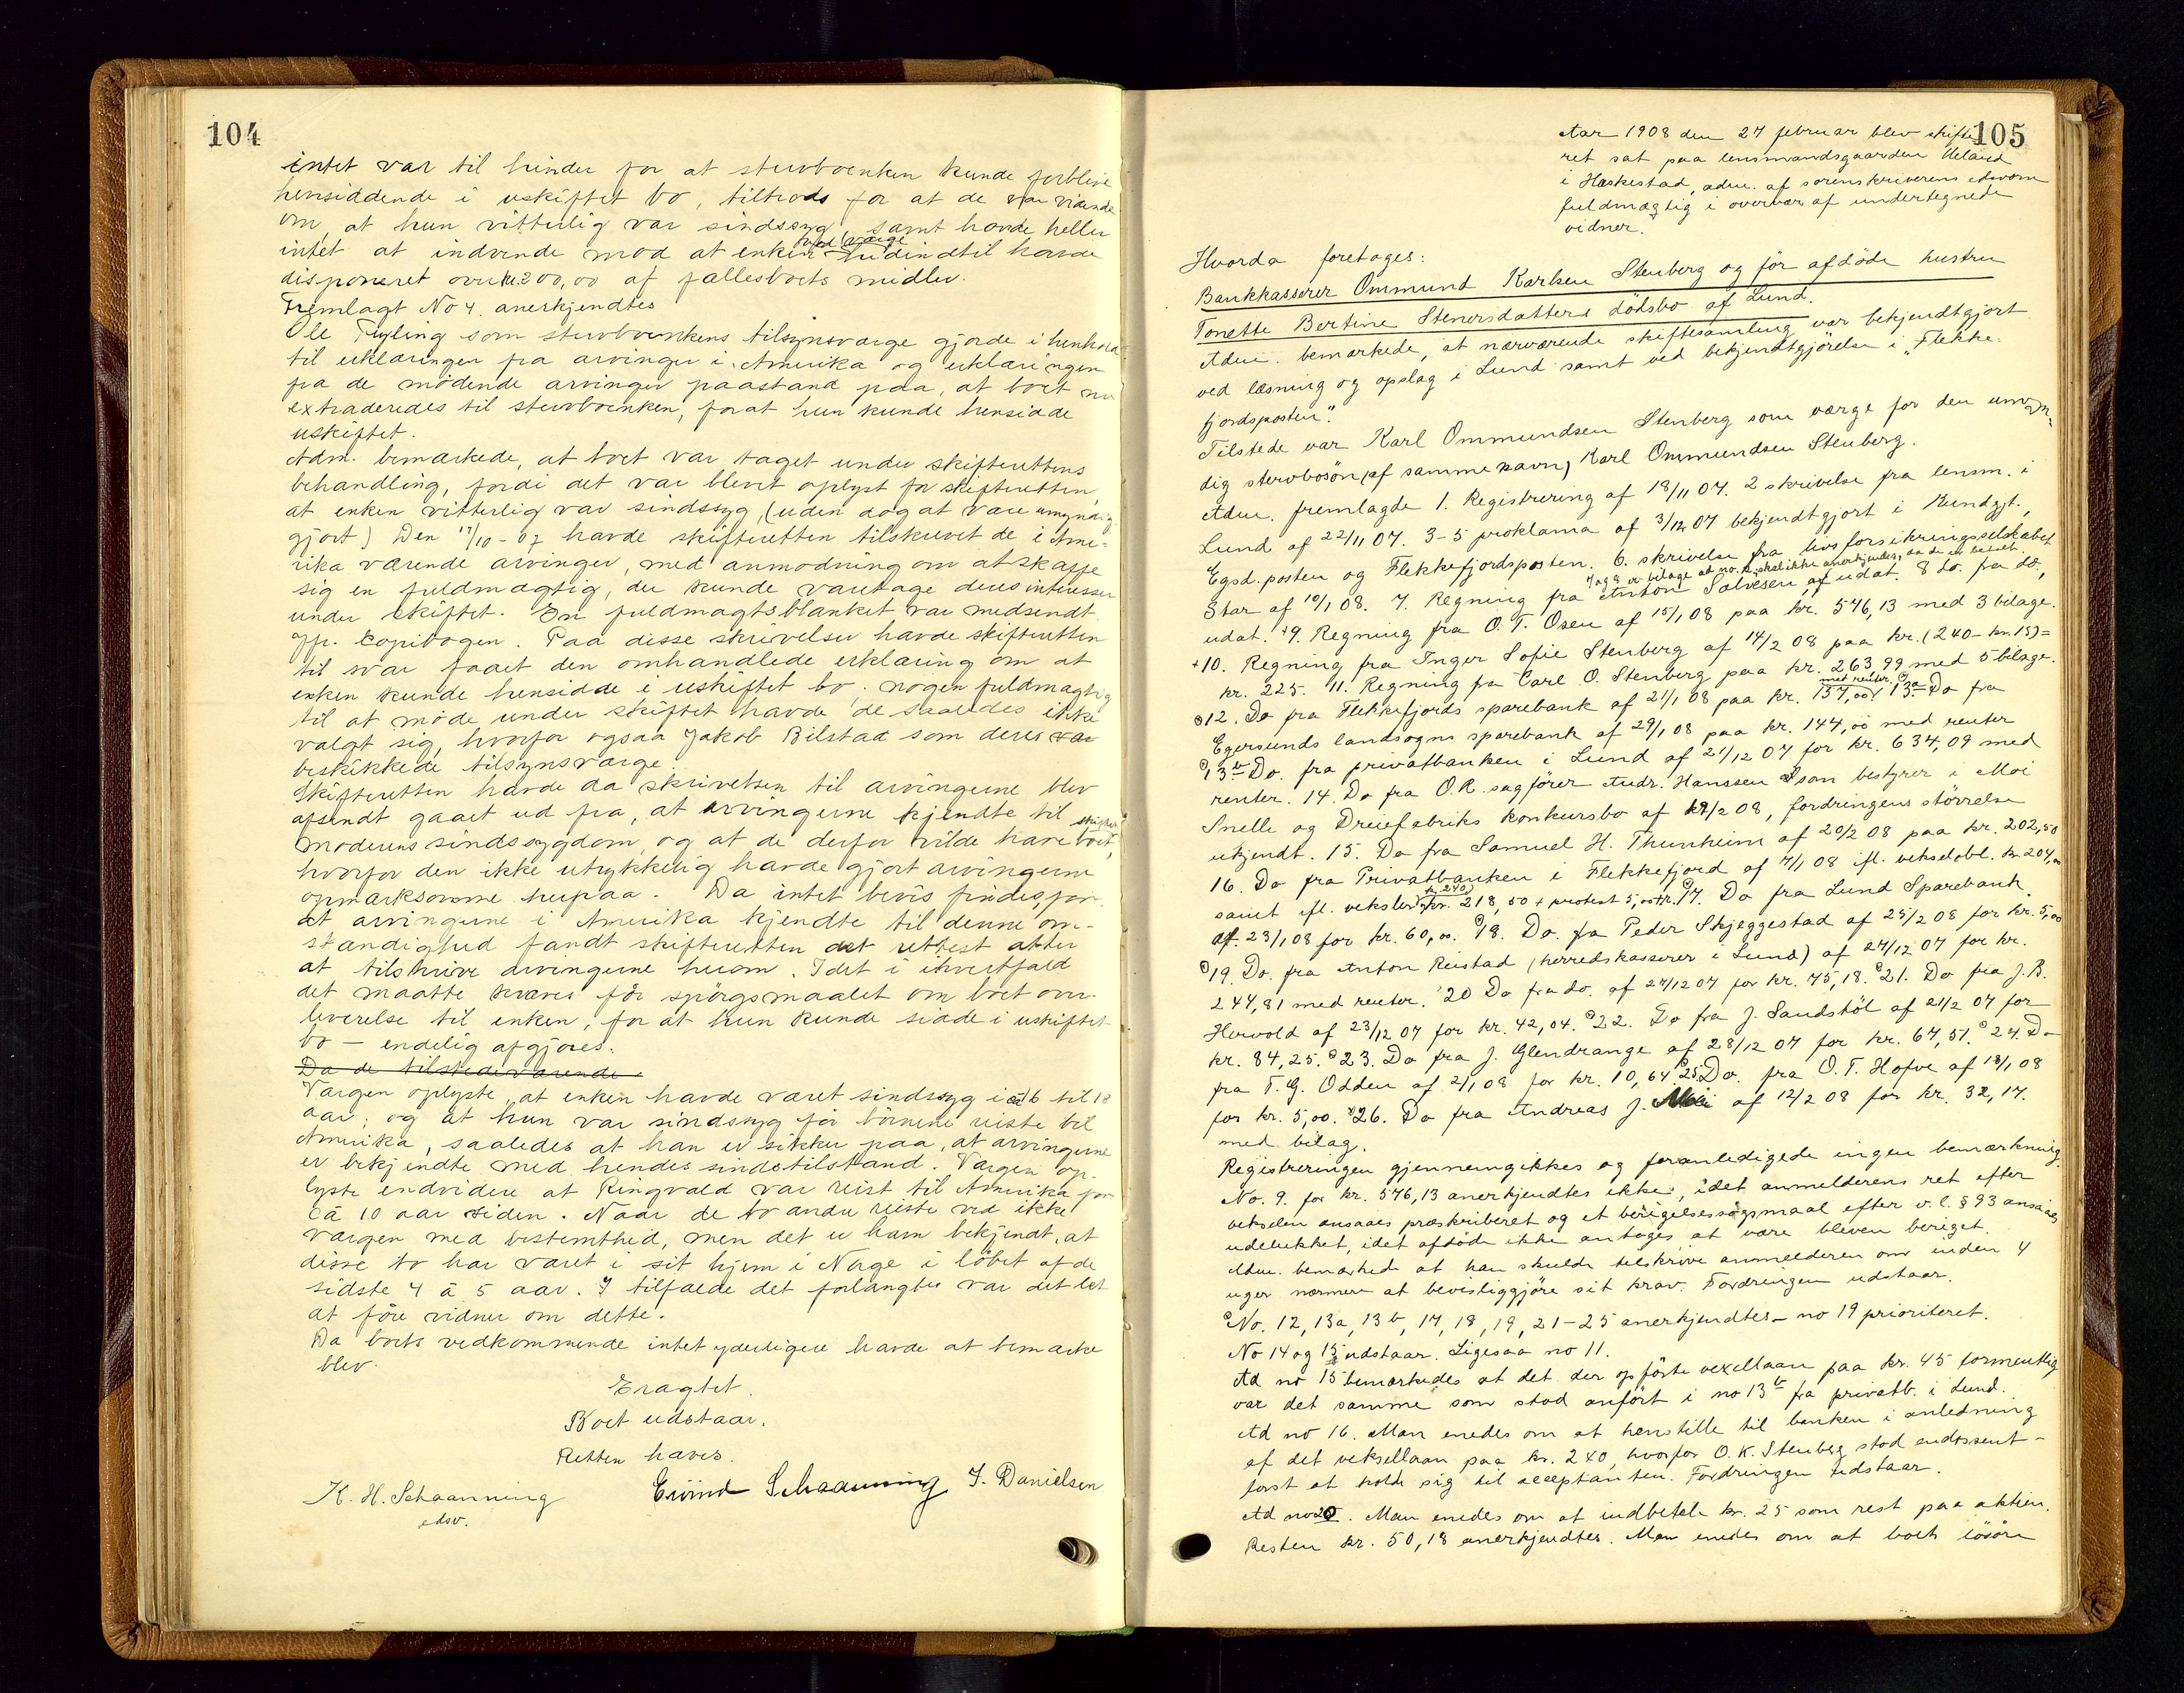 104
intet var til hinder for at stervboenken kunde forblive
hensiddende i uskiftet bo, tiltrods for at de var vidende
om, at hun vitterlig var sindssyg, samt havde heller
intet at indvende mod at enken ved værge hidindtil havde
disponeret over kr. 200,00 af fællesboets midler.
Fremlagt No 4. anerkjendtes
Ole Tyling som stervboenkens tilsynsværge gjorde i henhold
til erklæringer fra arvinger i Amerika og erklæringen
fra de mødende arvinger paastand paa, at boet nu
extraderedes til stervboenken, forat hun kunde hensidde
uskiftet.
Adm. bemærkede, at boet var taget under skifterettens
behandling, fordi det var blevet oplyst for skifteretten,
at enken vitterlig var sindssyg, (uden dog at være umyndig-
gjort) Den 17/10-07 havde skifteretten tilskrevet de i Ame-
rika værende arvinger, med anmodning om at skaffe
sig en fuldmægtig, der kunde varetage deres interesser
under skiftet. En fuldmagtsblanket var medsendt.
Jfr. Copibogen. Paa disse skrivelser havde skifteretten
til svar faaet den omhandlede erklæring om at
enken kunde hensidde i uskiftet bo. Nogen fuldmægtig
til at møde under skiftet havde de saaledes ikke
valgt sig, hvorfor ogsaa Jakob Bilstad som deres var
beskikkede tilsynsværge.
Skifteretten havde da skrivelsen til arvingerne blev
afsendt gaaet ud fra, at arvingerne kjendte til
moderens sindssygdom, og at de derfor vilde have boet skiftet,
hvorfor den ikke utrykkelig havde gjort arvingerne
opmærksomme herpaa. Da intet bevis findes for
at arvingerne i Amerika kjendte til denne om-
stændighed fandt skifteretten det rettest atter
at tilskrive arvingerne herom. Idet i ethvertfald
det maatte kræves før spørgsmaalet om boet over-
leverelse til enken, for at hun kunde sidde i uskiftet
bo — endelig afgjøres.
Da de tilstedeværende
Værgen oplyste, at enken havde været sindssyg i ca 16 til 18
aar, og at hun var sindssyg før børnene reiste til
Amerika, saaledes at han er sikker paa, at arvingerne
er bekjendte med hendes sindstilstand. Værgen op-
lyste endvidere at Ringvald var reist til Amerika for
ca 10 aar siden. Naar de to andre reiste ved ikke
værgen med bestemthed, men det er ham bekjendt, at
disse to har været i sit hjem i Norge i løbet af de
sidste 4 à 5 aar. I tilfælde det forlangtes var det let
at føre vidner om dette.
Da boets vedkommende intet yderligere havde at bemærke
blev
Eragtet.
Boet udstaar.
Retten hæves.
K. H. Schaanning Eivind Schaanning J. Danielsen
edsv.
105
Aar 1908 den 27 februar blev skifte-
ret sat paa lensmandsgaarden Ueland
i Heskestad, adm. af sorenskriverens edsvorne
fuldmægtig i overvær af undertegnede
vidner.
Hvorda foretoges:
Bankkasserer Ommund Karlsen Stenberg og før afdøde hustru
Tonette Bertine Stenersdatters dødsbo af Lund.
Adm. bemærkede, at nærværende skiftesamling var bekjendtgjort
ved læsning og opslag i Lund samt ved bekjendtgjørelse i „Flekke-
fjordsposten“.
Tilstede var Karl Ommundsen Stenberg som værge for den umyn-
dig stervbosøn (af samme navn) Karl Ommundsen Stenberg.
Adm. fremlagde 1. Registrering af 18/11 07. 2 skrivelse fra lensm. i
Lund af 22/11 07. 3-5 proklama af 3/12 07 bekjendtgjort i Kundgjt.,
Egsd. posten og Flekkefjordsposten. 6. skrivelse fra livsforsikringsselskabet
7 og 8 er bilage at no. 11, skal ikke anerkjendes, da de er betalt.
Star af 10/1 08. 7. Regning fra Anton Salvesen af udat. 8 do. fra do.,
udat. +9. Regning fra O. T. Osen af 15/1 08 paa kr. 576,13 med 3 bilage.
+10. Regning fra Inger Sofie Stenberg af 14/2 08 paa kr. (240 - kr. 15)=
kr. 225. 11. Regning fra Carl O. Stenberg paa kr. 263,99 med 5 bilage.
12. Do fra Flekkefjords sparebank af 21/1 08 paa kr. 157,00 med renter. 13a Do fra
Egersunds landsogns sparebank af 29/1 08 paa kr. 144,00 med renter
13b Do. fra privatbanken i Lund af 21/12 07 for kr. 634,09 med
renter. 14. Do fra O.R. sagfører Andr. Hanssen som bestyrer i Moi
Snelle og Dreiefabriks konkursbo af 19/2 08, fordringens størrelse
ukjendt. 15. Do fra Samuel H. Thunheim af 20/2 08 paa kr. 202,50
16. Do fra Privatbanken i Flekkefjord af 7/1 08 ifl. vekselobl. kr. 204,00
samt ifl. veksler (kr. 240) kr. 218,50 + protest 5,00 kr. 17. Do fra Lund Sparebank
af 23/1 08 for kr. 60,00. 18. Do. fra Peder Skjeggestad af 25/2 08 for kr. 5,00
19. Do. fra Anton Reistad (herredskasserer i Lund) af 27/12 07 for kr.
247,81 med renter. 20 Do fra do. af 27/12 07 for kr. 75,18. 21. Do fra J. B.
Hervold af 23/12 07 for kr. 42,04. 22. Do fra J. Sandstøl af 21/2 07 for
kr. 84,25. 23. Do fra J. Glendrange af 28/12 07 for kr. 67,51. 24. Do
fra T. G. Odden af 2/1 08 for kr. 10,64. 25. Do. fra O. T. Hofve af 18/1 08
for kr. 5,00. 26. Do fra Andreas J. Moi af 12/2 08 for kr. 32,17.
med bilag.
Registreringen gjennemgikkes og foranledigede ingen bemærkning.
No. 9. for kr. 576,13 anerkjendtes ikke, idet anmelderens ret efter
vekselen ansaaes præskriberet og et berigelsessøgsmaal efter v. l. § 93 ansaaes
udelukket, idet afdøde ikke antoges at være bleven beriget.
Adm. bemærkede at han skulde tilskrive anmelderen om inden 4
uger nærmere at bevisliggjøre sit krav. Fordringen udstaar.
No. 12, 13a, 13b, 17, 18, 19, 21-25 anerkjendtes - no 19 prioriteret.
No 14 og 15 udstaar. Ligesaa no 11.
Ad no 15 bemærkedes at det der opførte vexellaan paa kr. 45 formentlig
var det samme som stod anført i no 13b fra privatb. i Lund.
Ad no 16. Man enedes om at henstille til banken i anledning
af det veksellaan paa kr. 240, hvorfor O. K. Stenberg stod endossent -
først at holde sig til acceptanten. Fordringen udstaar.
Ad no 20. Man enedes om at indbetale kr. 25 som rest paa aktien.
Resten kr. 50,18 anerkjendtes. Man enedes om at boets løsøre